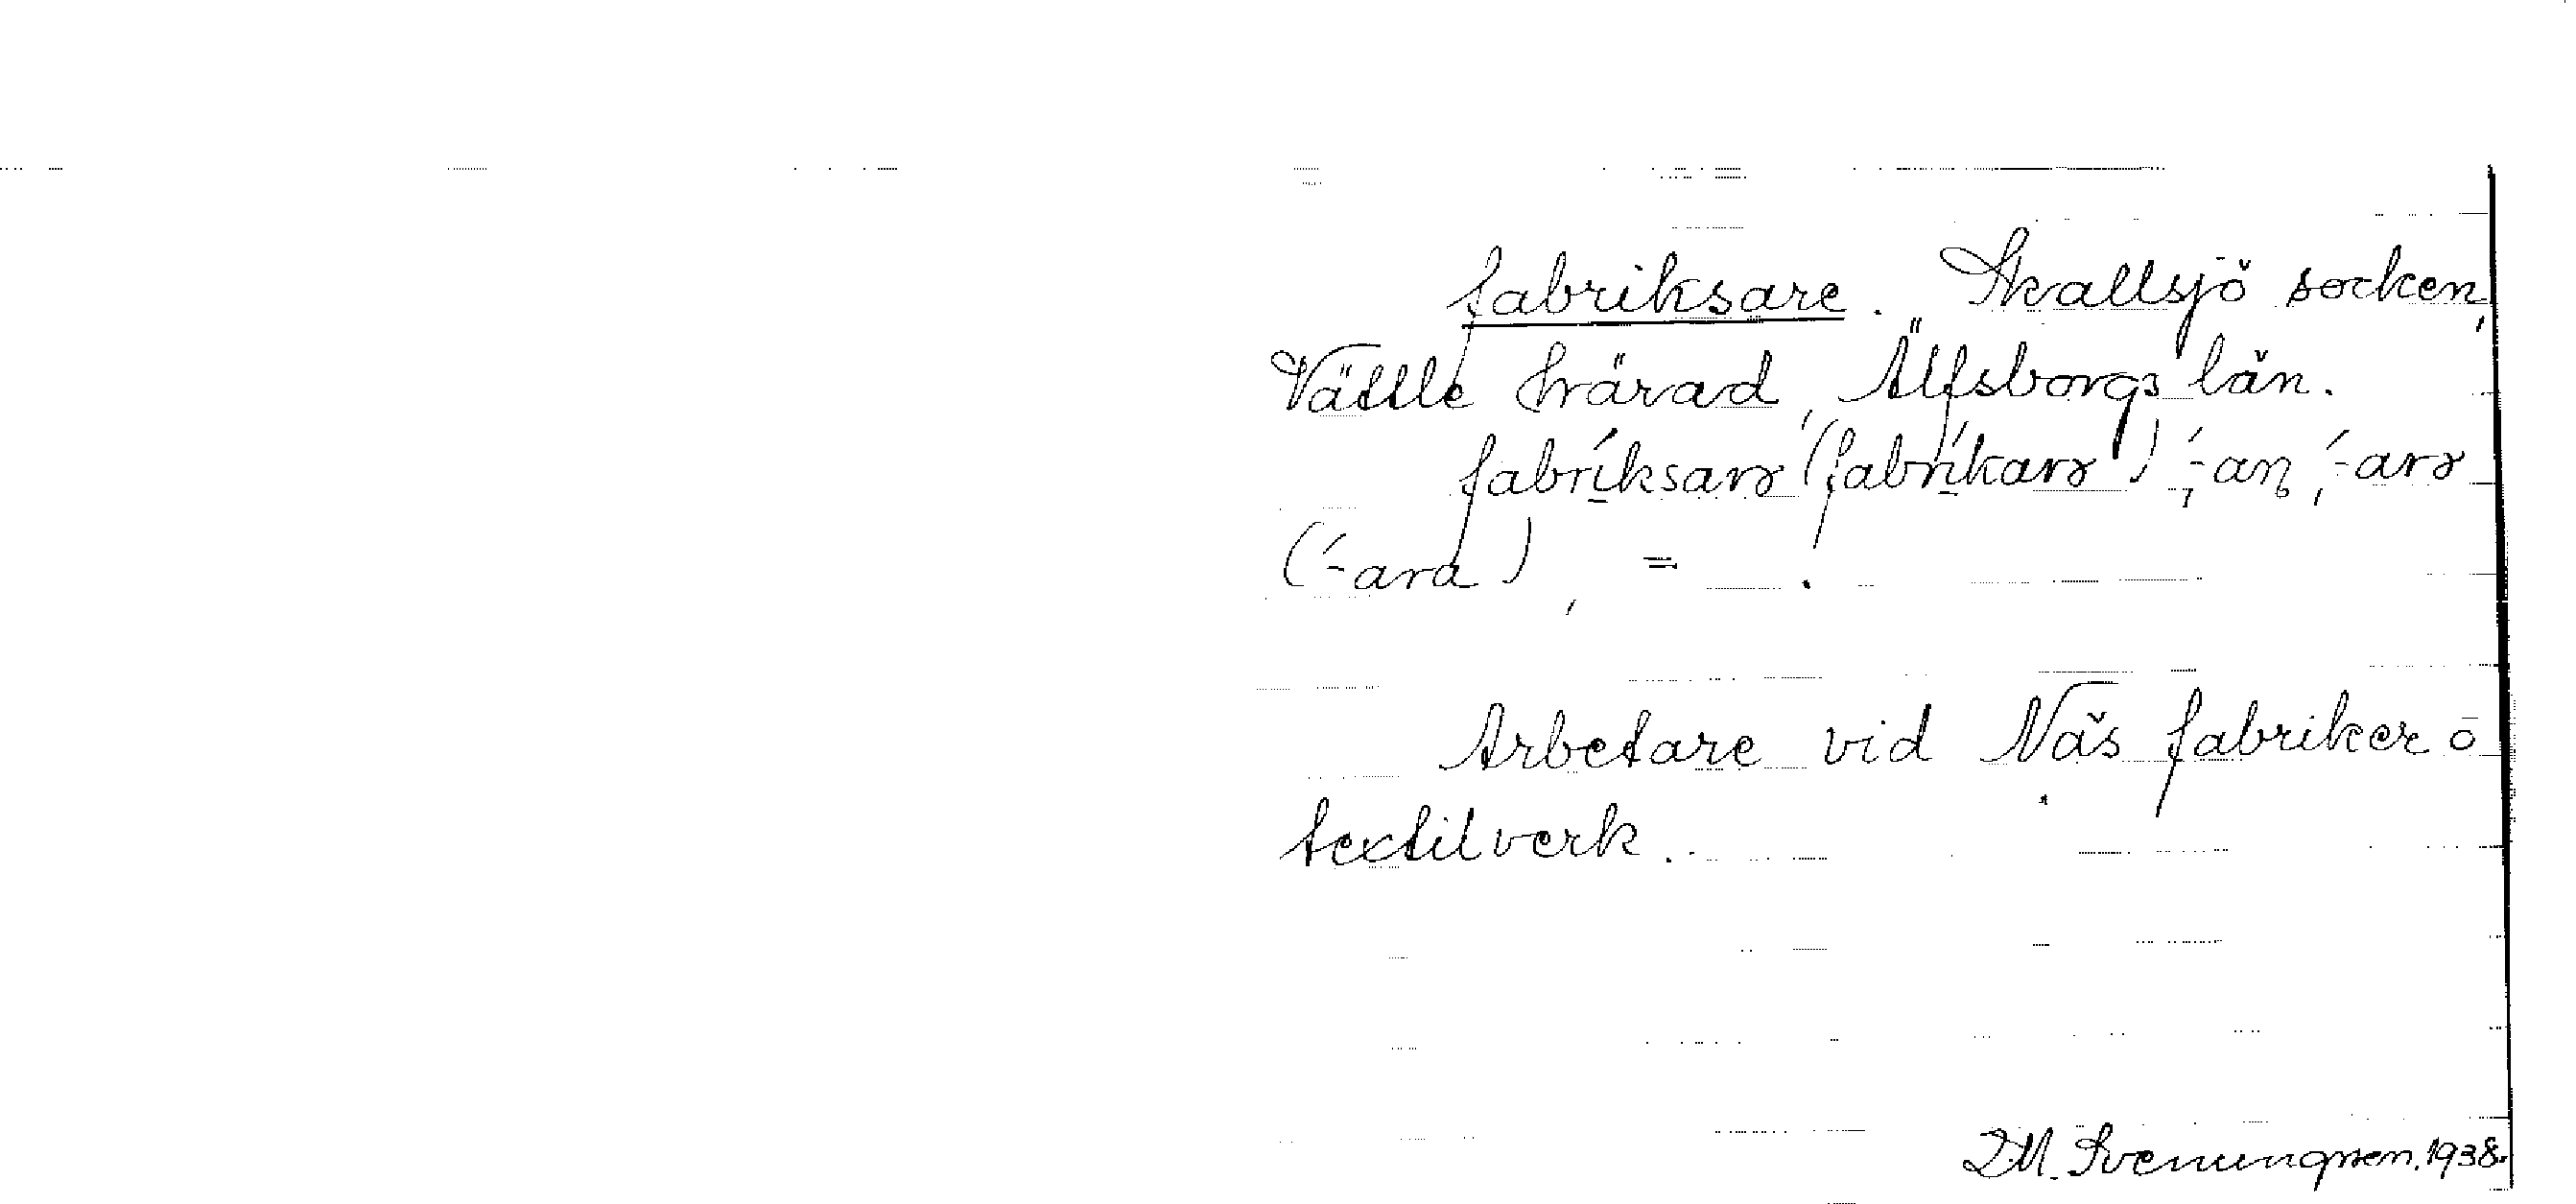 fabriksare. Skallsjö socken,
Vättle härad, Älfsborgs län.
fabríksarə (fabríkarə), ́-an, ́-arə
(́-ara), = .
Arbetare vid Näs fabriker o
textilverk.
Svenungsson. 1938.